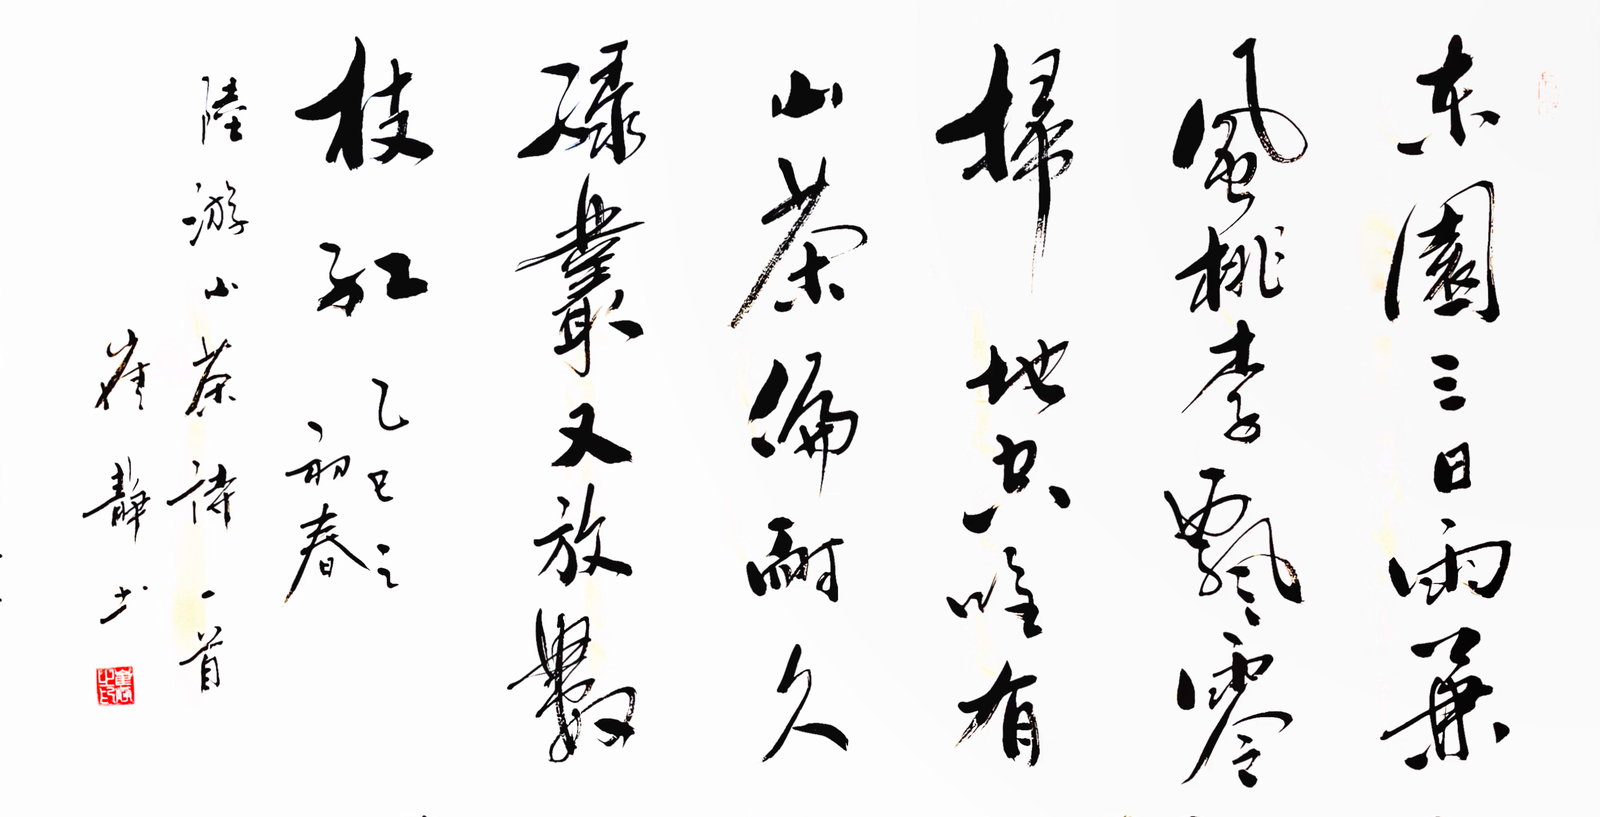 东園三日雨兼
風桃李飄零
掃地空唯有
山茶偏耐久
緑叢又放數
枝紅
乙巳之
初春
陸游山茶詩一首
崔靜书